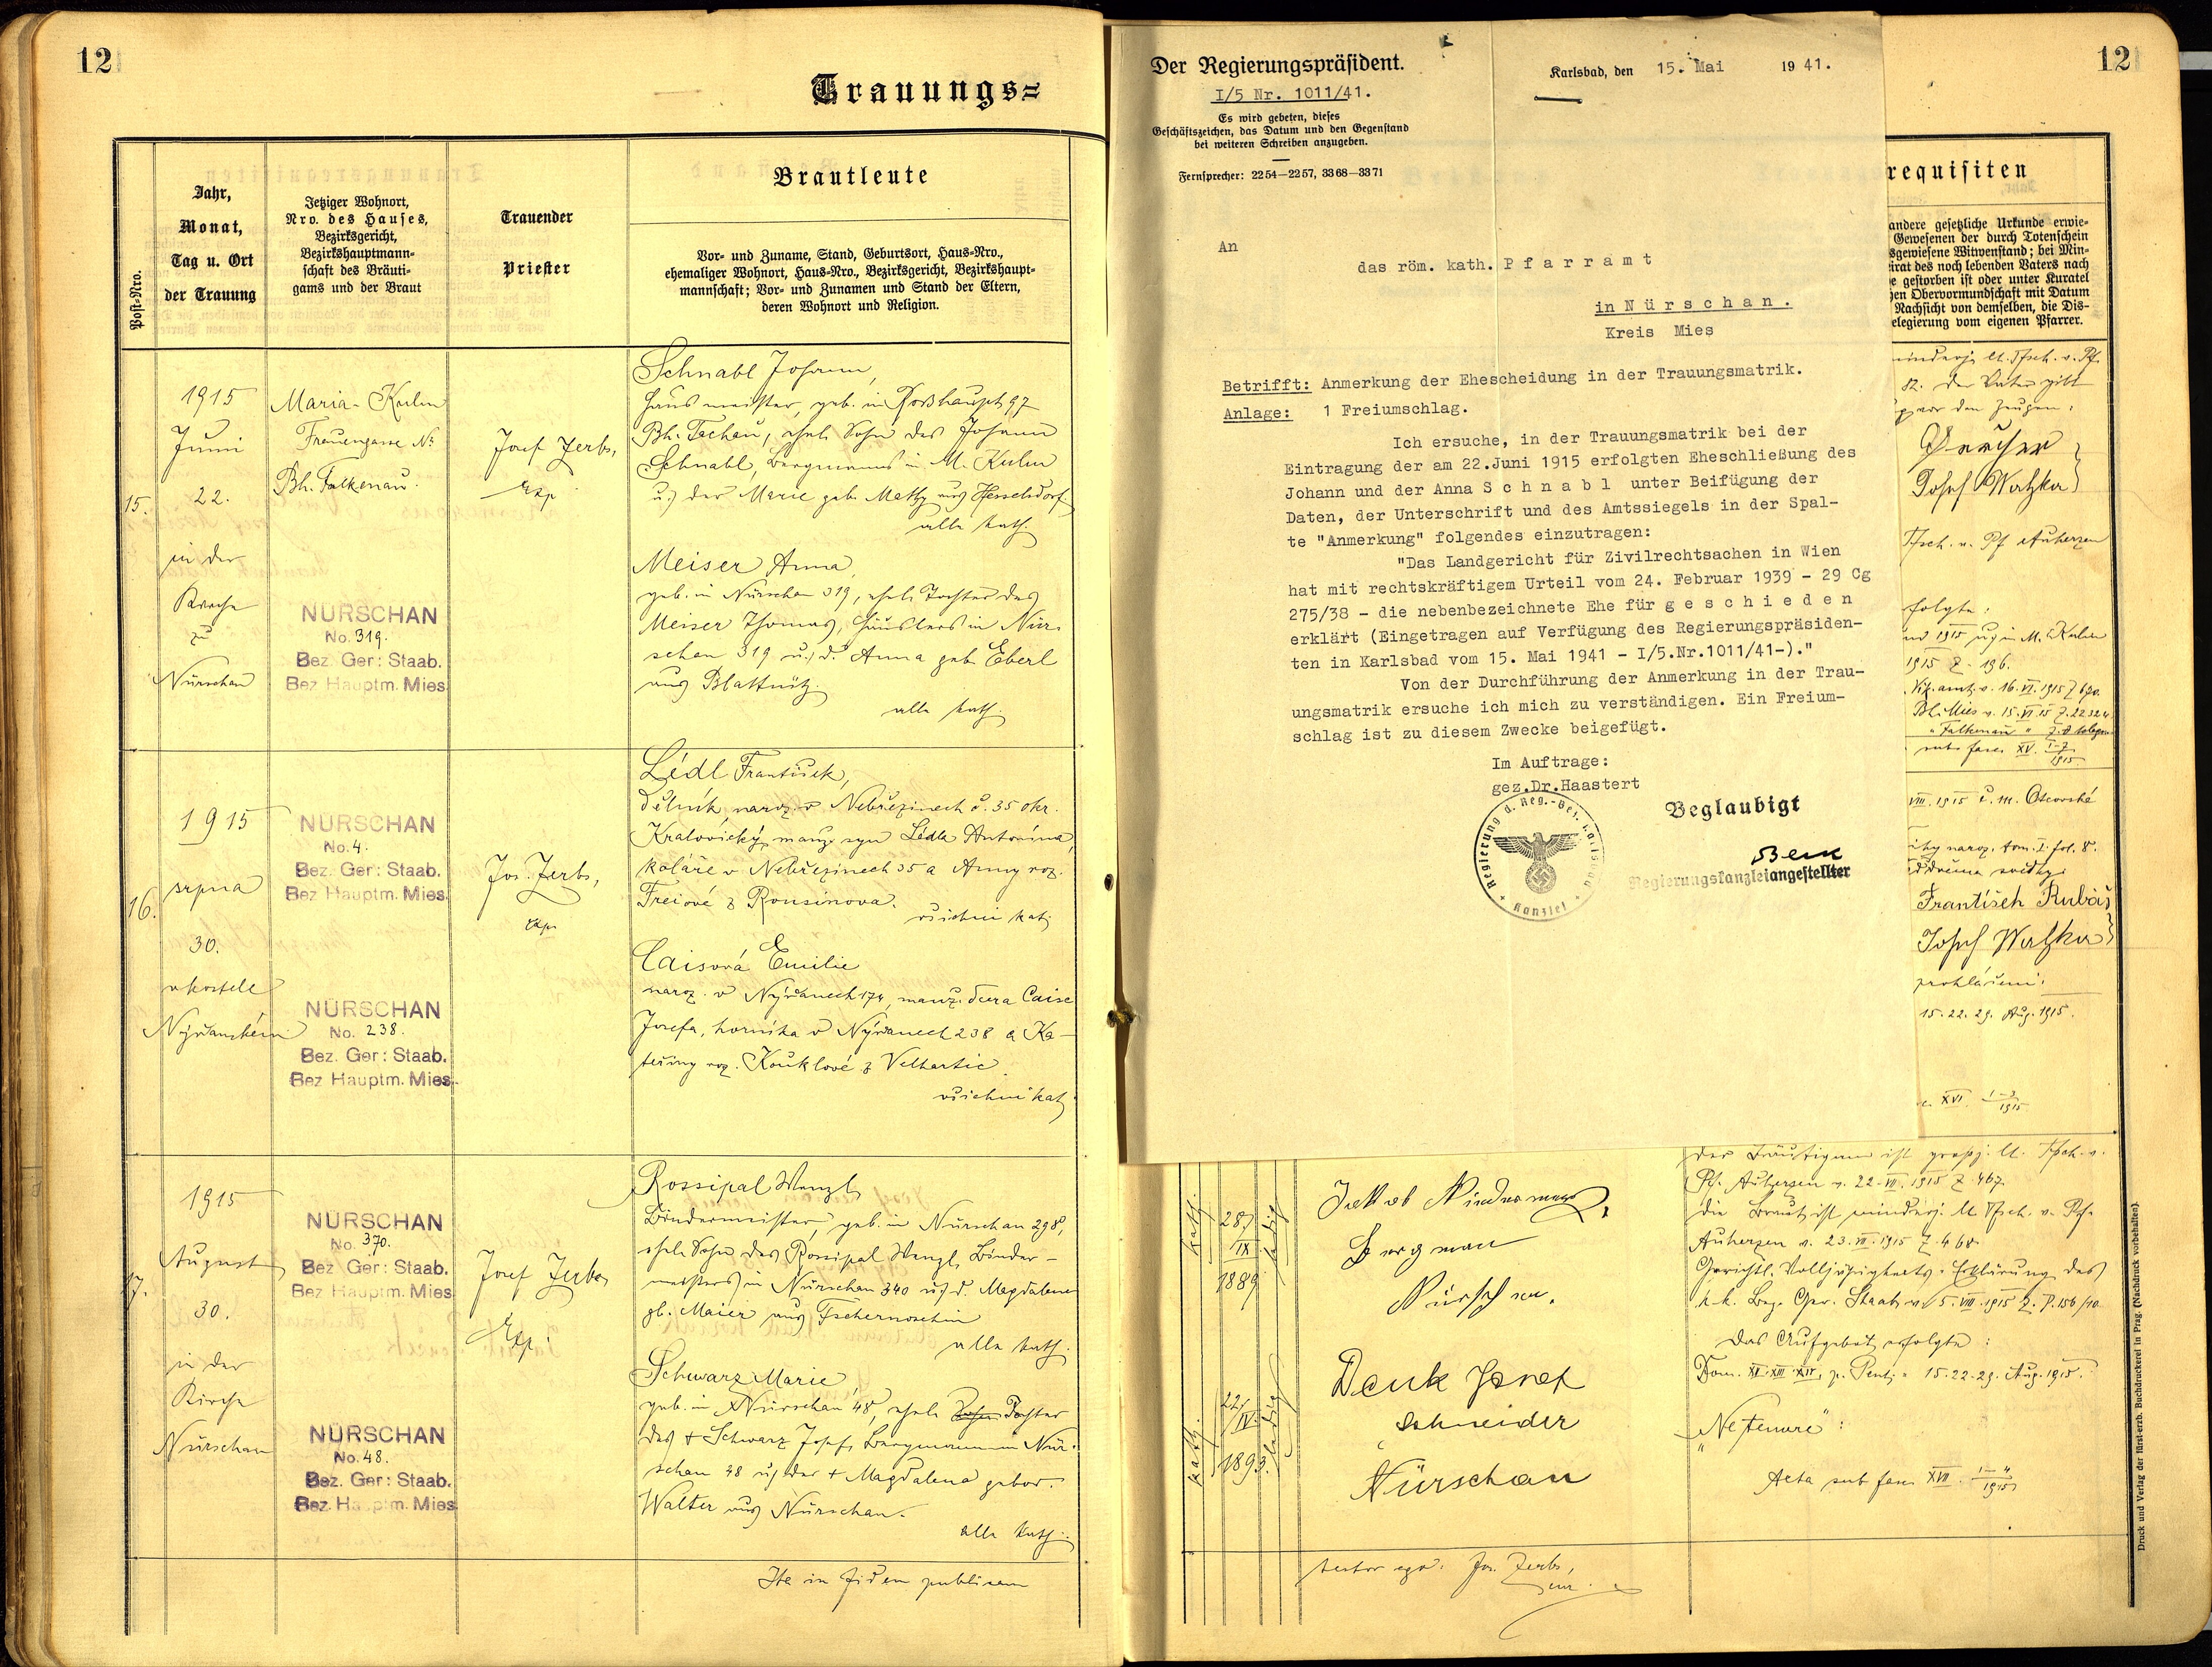 12
Trauungs=
Post-Nro.
Jahr,
Monat,
Tag u. Ort
der Trauung
Jetziger Wohnort,
Nro. des Hauses,
Bezirksgericht,
Bezirkshauptmann-
schaft des Bräuti-
gams und der Braut
Trauender
Priester
Brautleute
Vor- und Zuname, Stand, Geburtsort, Haus-Nro.,
ehemaliger Wohnort, Haus-Nro., Bezirksgericht, Bezirkshaupt-
mannschaft; Vor- und Zunamen und Stand der Eltern,
deren Wohnort und Religion.
15.
1915
Juni
22.
in der
Kirche
zu
Nürschan
Maria-Kulm
Frauengasse No
Bh. Falkenau.
NÜRSCHAN
No. 319.
Bez. Ger: Staab.
Bez Hauptm. Mies
Josef Zerbs,
Exp
Schnabl Johann,
Hausmeister, geb. in Roßhaupt 97
Bh. Tachau, ehel. Sohn des Johann
Schnabl, Bergmanns in M. Kulm
u. der Marie geb. Matty aus Hesselsdorf.
alle kath.
Meiser Anna,
geb. in Nürschan 319, ehel. Tochter des
Meiser Thomas, Häuslers in Nür-
schan 319 u. d. Anna geb. Eberl
aus Blattnitz.
alle kath.
16.
1915
srpna
30.
v kostele
Nýřanském
NÜRSCHAN
No. 4.
Bez. Ger: Staab.
Bez Hauptm. Mies
NÜRSCHAN
No. 238.
Bez. Ger: Staab.
Bez Hauptm. Mies
Jos. Zerbs,
exp.
Lédl František,
dělník, naroz. v Nebřezinech č. 35 okr.
Kralovický, manž. syn Lédla Antonína,
koláře v Nebřezinech 35 a Anny roz.
Freiové z Ronšinova.
všichni kat.
Caisová Emilie
naroz. v Nýřanech 174, manž. dcera Caise
Josefa, horníka v Nýřanech 238 a Ka-
teřiny roz. Kouklové z Velhartic.
všichni kat.
17.
1915
August
30.
in der
Kirche
Nürschan
NÜRSCHAN
No. 370.
Bez. Ger: Staab.
Bez Hauptm. Mies
NÜRSCHAN
No. 48.
Bez. Ger: Staab.
Bez Hauptm. Mies
Josef Zerbs
Exp.
Rossipal Wenzl,
Bindermeister, geb. in Nürschan 298,
ehel. Sohn des Rossipal Wenzl, Binder-
meisters in Nürschan 340 u. d. Magdalena
gb. Maier aus Tschernoschin
alle kath.
Schwarz Marie,
geb. in Nürschan 48, ehel. Sohn Tochter
des + Schwarz Josef, Bergmann in Nür-
schan 48 u. der + Magdalena gebor.
Walter aus Nürschan.
alle kath.
Ita in fidem publicam
Der Regierungspräsident.
I/5 Nr. 1011/41.
Es wird gebeten, dieses
Geschäftszeichen, das Datum und den Gegenstand
bei weiteren Schreiben anzugeben.
Fernsprecher: 2254—2257, 3368—3371
Karlsbad, den 15. Mai 1941.
An
das röm. kath. Pfarramt
in Nürschan.
Kreis Mies
Betrifft: Anmerkung der Ehescheidung in der Trauungsmatrik.
Anlage: 1 Freiumschlag.
Ich ersuche, in der Trauungsmatrik bei der
Eintragung der am 22.Juni 1915 erfolgten Eheschließung des
Johann und der Anna Schnabl unter Beifügung der
Daten, der Unterschrift und des Amtssiegels in der Spal-
te "Anmerkung" folgendes einzutragen:
"Das Landgericht für Zivilrechtsachen in Wien
hat mit rechtskräftigem Urteil vom 24. Februar 1939 - 29 Cg
275/38 - die nebenbezeichnete Ehe für geschieden
erklärt (Eingetragen auf Verfügung des Regierungspräsiden-
ten in Karlsbad vom 15. Mai 1941 - I/5.Nr.1011/41-)."
Von der Durchführung der Anmerkung in der Trau-
ungsmatrik ersuche ich mich zu verständigen. Ein Freium-
schlag ist zu diesem Zwecke beigefügt.
Im Auftrage:
gez.Dr.Haastert
Regierung d. Reg.-Bez. Karlsbad
Kanzlei
Beglaubigt
Regierungskanzleiangestellter
12
requisiten
andere gesetzliche Urkunde erwie-
Gewesenen der durch Totenschein
sgewiesene Witwenstand; bei Min-
eirat des noch lebenden Vaters nach
e gestorben ist oder unter Kuratel
hen Obervormundschaft mit Datum
Nachsicht von demselben, die Dis-
elegierung vom eigenen Pfarrer.
minderj. lt. Tfsch. v. Pf.
82. Der Vater gibt
vor den Zeugen:
Josef Watzka
Tfsch. v. Pf Auherzen
folgte:
und 1915 u. in M. Kulm
1915 Z. 196.
Bh. Mies v. 15.VI.15 Z. 22324
" Falkenau "
sub fasc. XV. 1-7/1915
VIII. 1915
naroz. tom. I. fol. 8.
František Rubáš
Josef Watzka
prohlášení:
15. 22. 29. Aug. 1915.
XVI. 1-3/1915
kath.
28/IX 1889
ledig
Jakob Niedermayer
Bergman
Nürschan.
kath.
22/IV. 1893.
ledig
Denk Josef
Schneider
Nürschan
Der Bräutigam ist großj. lt. Tfsch. v.
Pf. Auherzen v. 22.VII.1915 Z. 467.
Die Braut ist minderj. lt Tfsch. v. Pf.
Auherzen v. 23.VII.1915 Z. 468.
Gerichtl. Volljährigkeits-Erklärung des
k.k. Bez. Ger. Staab v. 5.VIII.1915 Z. P.156/10
Das Aufgebot erfolgte:
Dom. XII. XIII. XIV. p. Pent. 15. 22. 29. Aug. 1915.
"Ne Temere":
Acta sub fasc XVII. 1-4/1915
testor ego: Jos. Zerbs,
Druck und Verlag der fürst-erzb. Buchdruckerei in Prag. (Nachdruck vorbehalten).